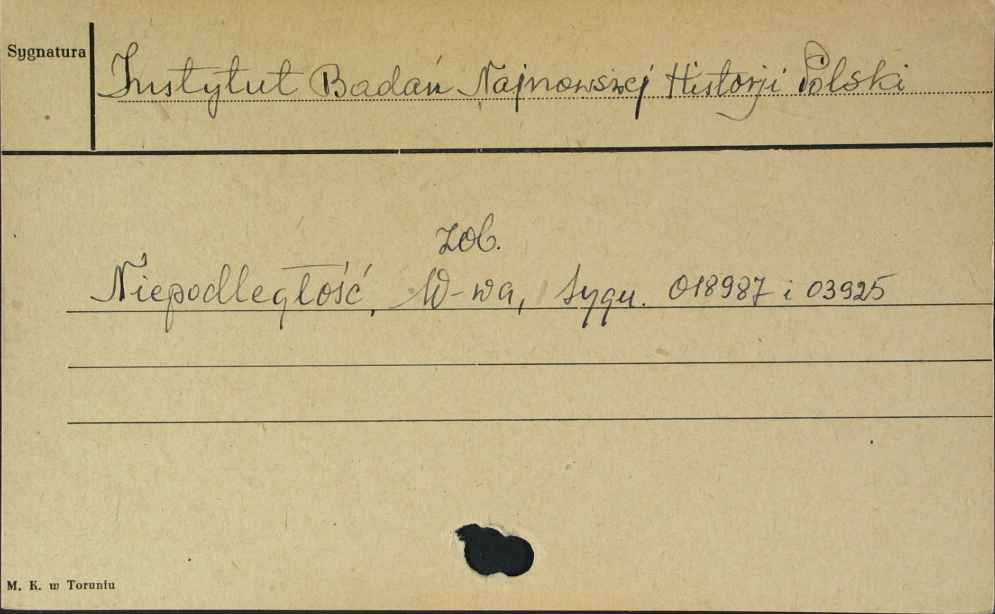 Sygnatura
Instytut Badań Najnowszej Historji Polski
zob.
Niepodległość, W-wa, Sygn. 018987 i 03925
M. K. w Toruniu